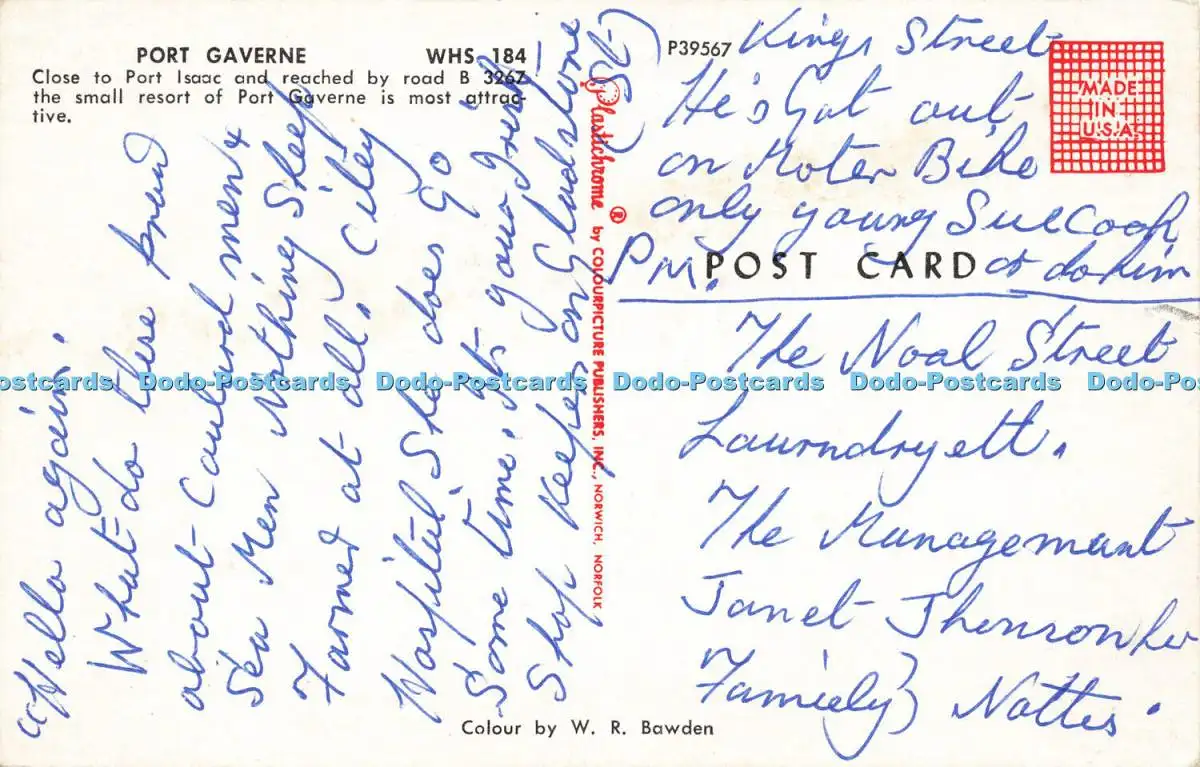 PORT GAVERNE WHS 184
Close to Port Isaac and reached by road B 3267
the small resort of Port Gaverne is most attrac-
tive.
Hello again.
What do these
about
Sea Men Nothing Sleep
Farmed at all. City
Hospital She does go
Some time. Its your
Shop Keeper on Gladstone
St
Plastichrome ® by COLOURPICTURE PUBLISHERS, INC., NORWICH, NORFOLK
P39567
Kings Street
He's Got out
on Moter Bike
only young Sue Cook
PM.
POST CARD
MADE
IN
U.S.A.
The Noal Street
Laurndryett.
The Managemant
Janet Jhonson her
Famiely) Nottes.
Colour by W. R. Bawden
Dodo-Postcards Dodo-Postcards Dodo-Postcards Dodo-Postcards Dodo-Postcards